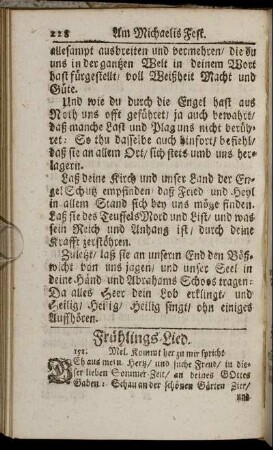 228 Am Michaelis Fest.
allesampt ausbreiten und vermehren/ die du
uns in der gantzen Welt in deinem Wort
hast fürgestellt/ voll Weißheit Macht und
Güte.
Und wie du durch die Engel hast aus
Noth uns offt geführet/ ja auch bewahrt/
daß manche Last und Plag uns nicht berüh-
ret: So thu dasselbe auch hinfort/ befiehl/
daß sie an allem Ort/ sich stets umb uns her-
lagern.
Laß deine Kirch und unser Land der En-
gel Schutz empfinden/ daß Fried und Heyl
in allem Stand sich bey uns möge finden.
Laß sie des Teuffels Mord und List/ und was
sein Reich und Anhang ist/ durch deine
Krafft zerstöhren.
Zuletzt/ laß sie an unserm End den Böß-
wicht von uns jagen/ und unser Seel in
deine Händ und Abrahams Schoos tragen:
Da alles Heer dein Lob erklingt/ und
Heilig/ Heilig/ Heilig singt/ ohn einiges
Auffhören.
Frühlings-Lied.
191. Mel. Kommt her zu mir spricht
GEh aus mein Hertz/ und suche Freud/ in die-
ser lieben Sommer-Zeit/ an deines GOttes
Gaben: Schau an der schönen Gärten Zier/
und